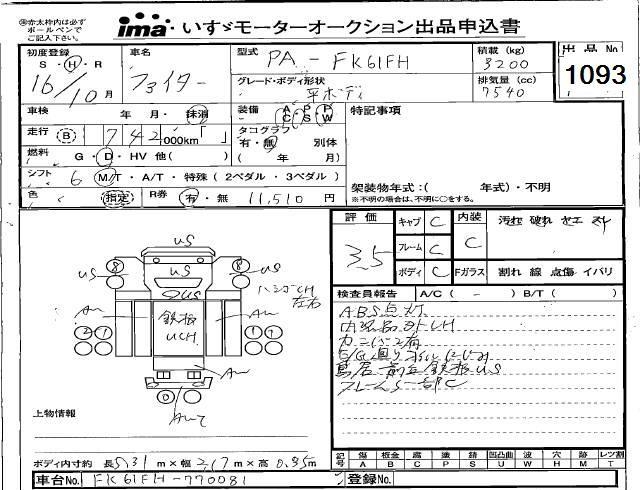 ※赤太枠内は必ず
ボールペンで
ご記入下さい。
ima いすゞモーターオークション出品申込書
初度登録 S・H・R 16/10月
車名 ファイター
型式 PA-FK61FH
積載(kg) 3200
出品No 1093
グレード・ボディ形状 平ボディ
排気量(cc) 7540
車検 年 月・抹消
装備 A/C P/S P/W
特記事項
走行 B 742 000km「 」
タコグラフ 有・無 別体
( 年 月)
燃料 G・D・HV 他( )
シフト 6 M/T・A/T・特殊(2ペダル・3ペダル)
架装物年式:( 年式)・不明
※不明の場合は、不明に○をする。
色 (指定) R券 有・無 11,510円
評価 3.5
キャブ C
フレーム C
ボディ C
内装 C
Fガラス
汚れ 破れ ヤエ スレ
割れ 線 点傷 イバリ
検査員報告 A/C( - ) B/T( )
ABS点灯
US
8 US
8 US
US
鉄板
UCH
左右
上物情報
フレームS一部C
ボディ内寸約 長5.31m×幅2.17m×高0.35m
記号 傷A 板金B 腐C 塗P 錆S 凹凸曲U 波W 穴H 跡M レツ割T
車台No. FK61FH-770081
登録No.